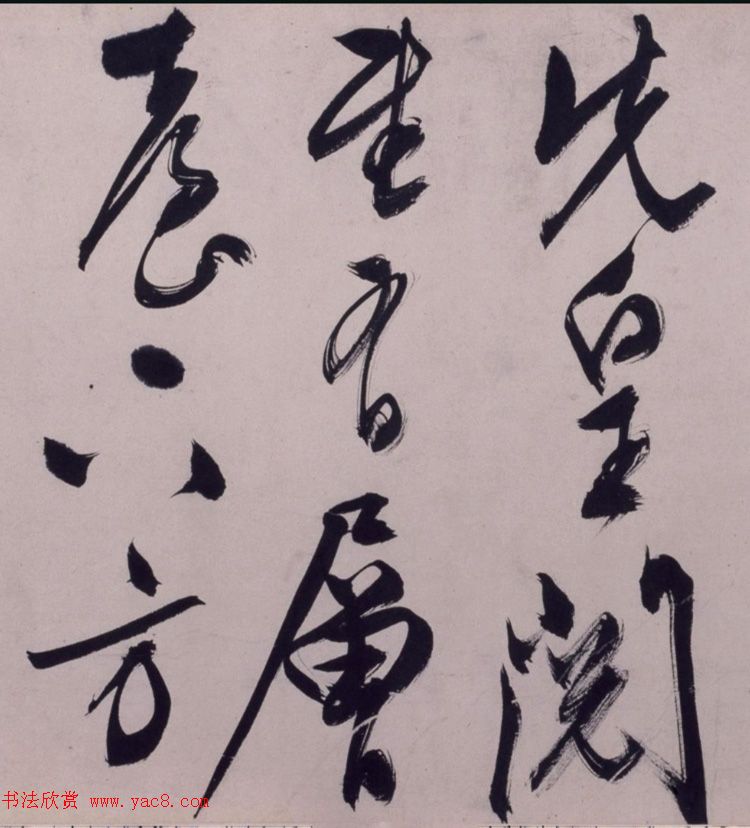 先皇閱
武有層
臺下方
书法欣赏 www.yac8.com